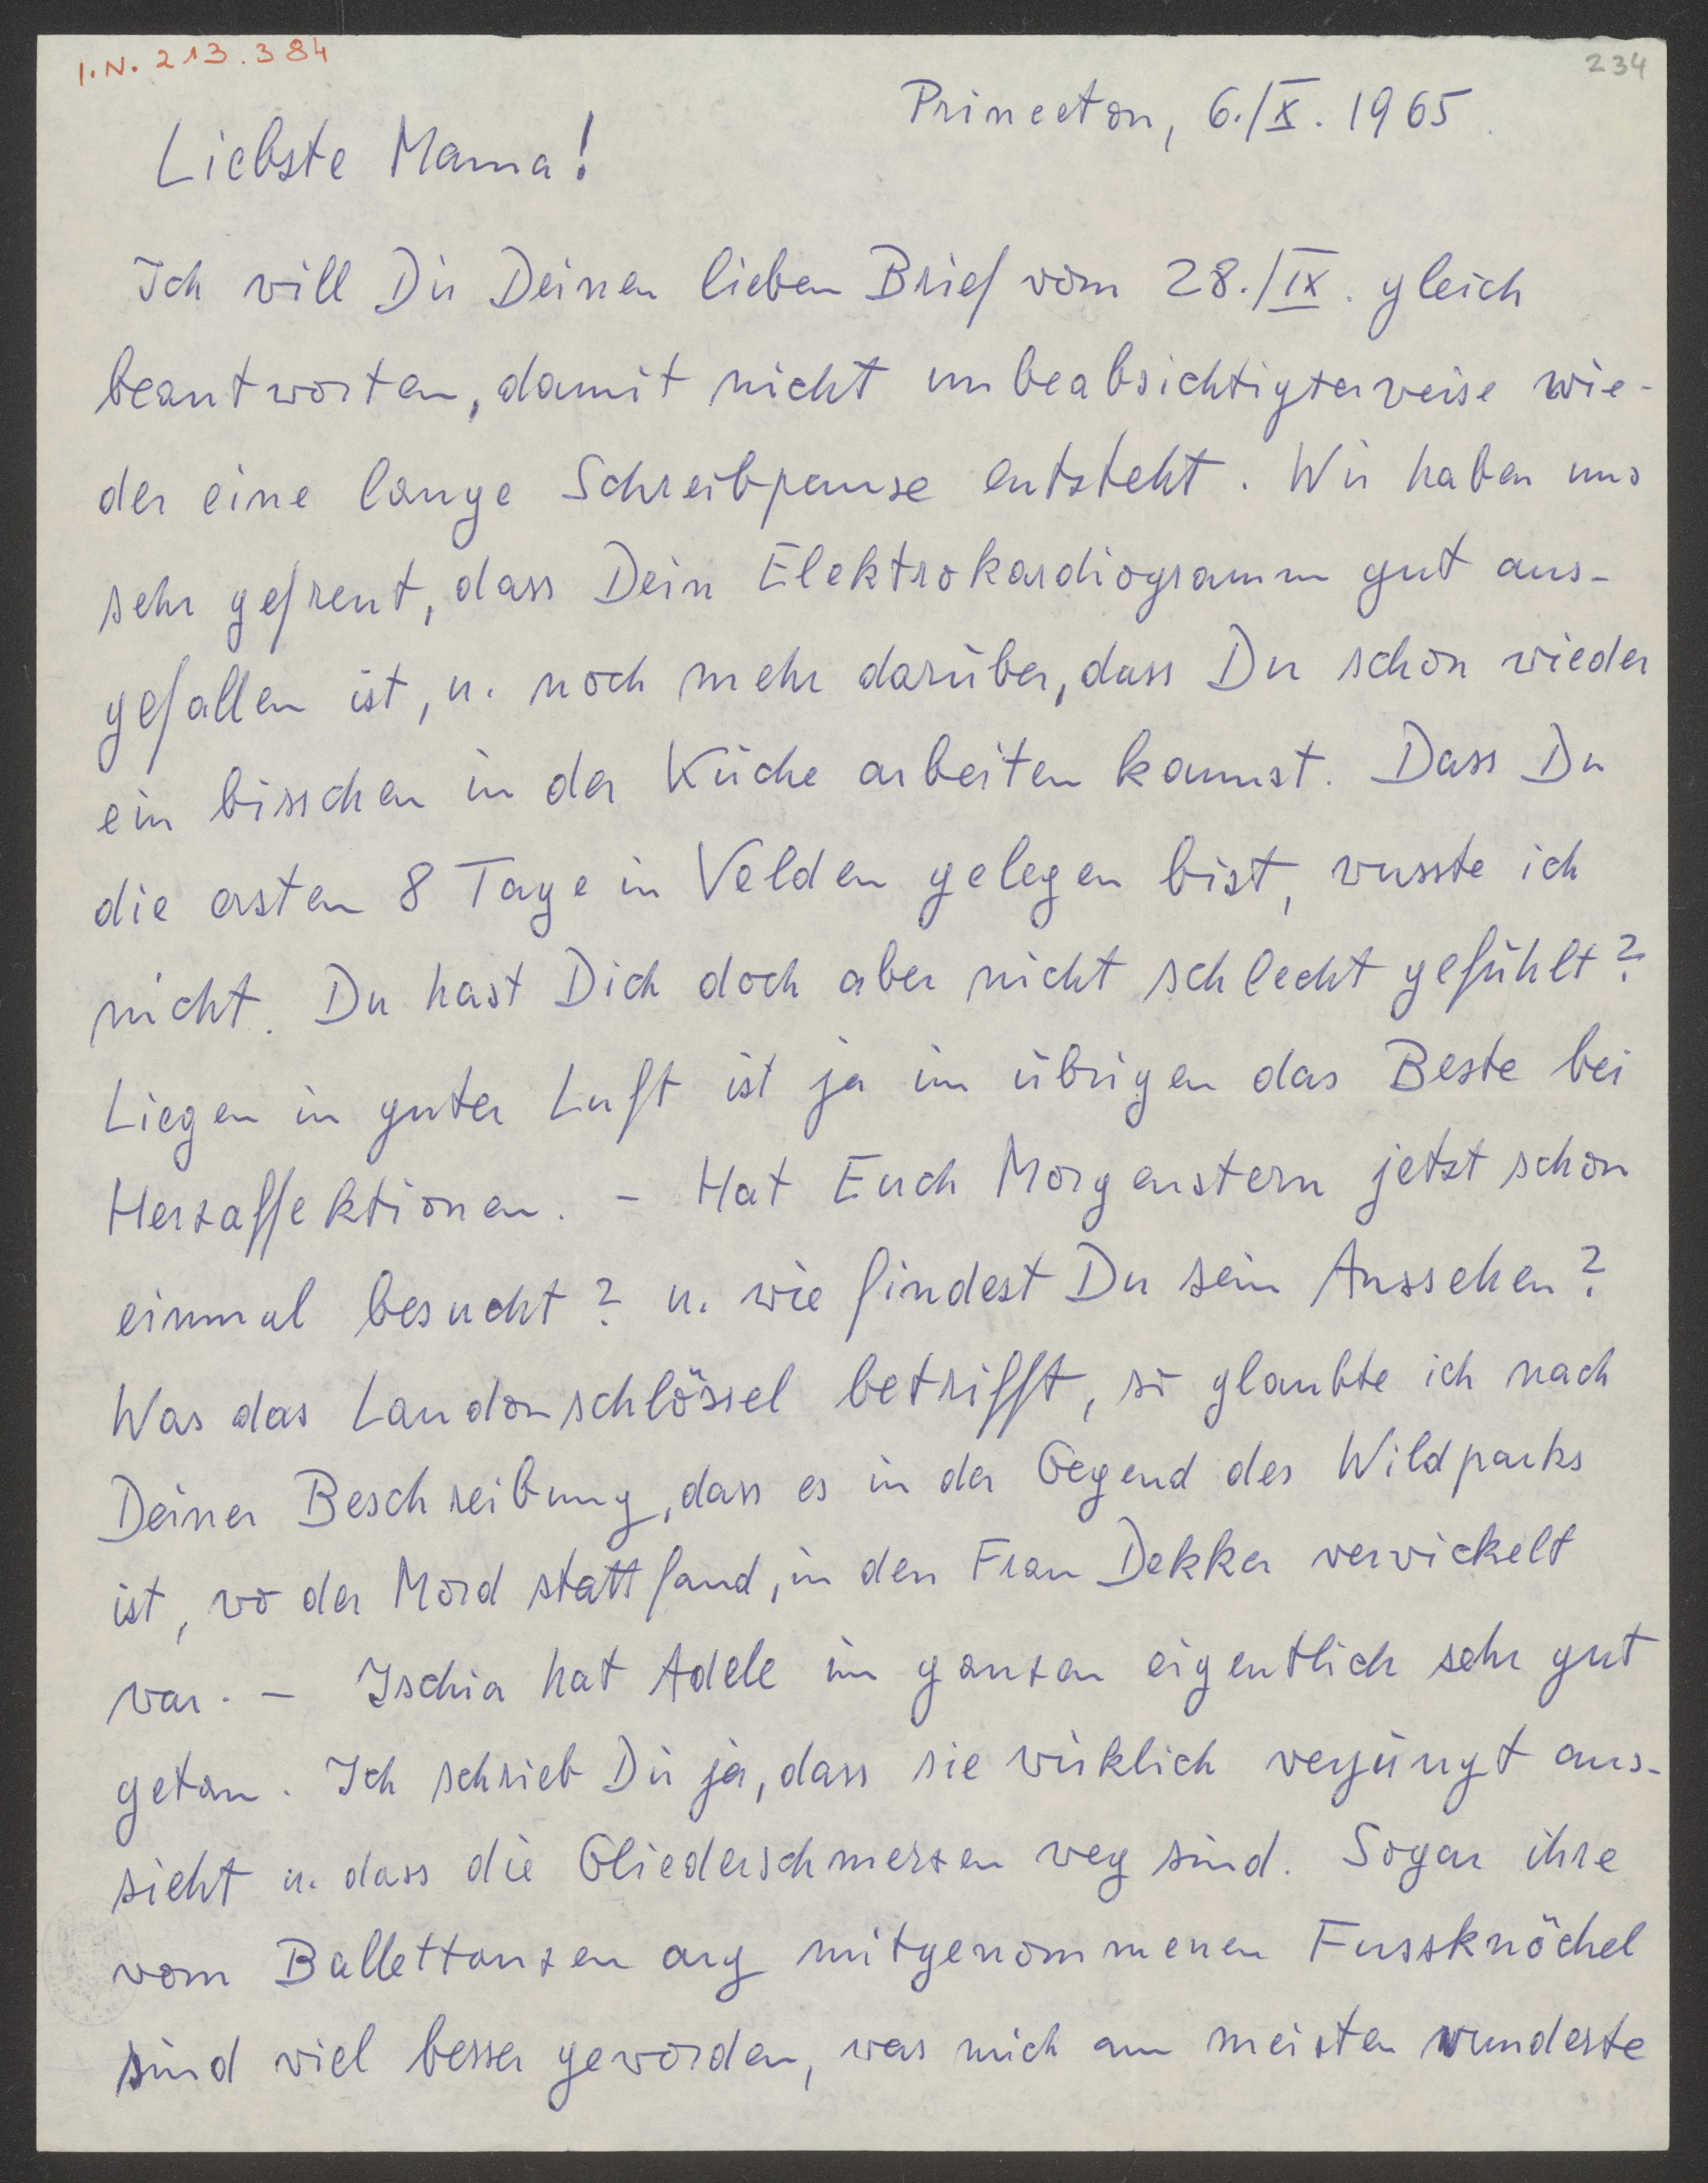 I.N. 213.384
234
Princeton, 6./X. 1965.
Liebste Mama!
Ich will Dir Deinen lieben Brief vom 28./IX. gleich
beantworten, damit nicht unbeabsichtigterweise wie-
der eine lange Schreibpause entsteht. Wir haben uns
sehr gefreut, dass Dein Elektrokardiogramm gut aus-
gefallen ist, u. noch mehr darüber, dass Du schon wieder
ein bisschen in der Küche arbeiten kannst. Dass Du
die ersten 8 Tage in Velden gelegen bist, wusste ich
nicht. Du hast Dich doch aber nicht schlecht gefühlt?
Liegen in guter Luft ist ja im übrigen das Beste bei
Herzaffektionen. – Hat Euch Morgenstern jetzt schon
einmal besucht? u. wie findest Du sein Aussehen?
Was das Laudonschlössel betrifft, so glaubte ich nach
Deiner Beschreibung, dass es in der Gegend des Wildparks
ist, wo der Mord stattfand, in den Frau Dekker verwickelt
war. – Ischia hat Adele im ganzen eigentlich sehr gut
getan. Ich schrieb Dir ja, dass sie wirklich verjüngt aus-
sieht u. dass die Gliederschmerzen weg sind. Sogar ihre
vom Ballettanzen arg mitgenommenen Fussknöchel
sind viel besser geworden, was mich am meisten wunderte